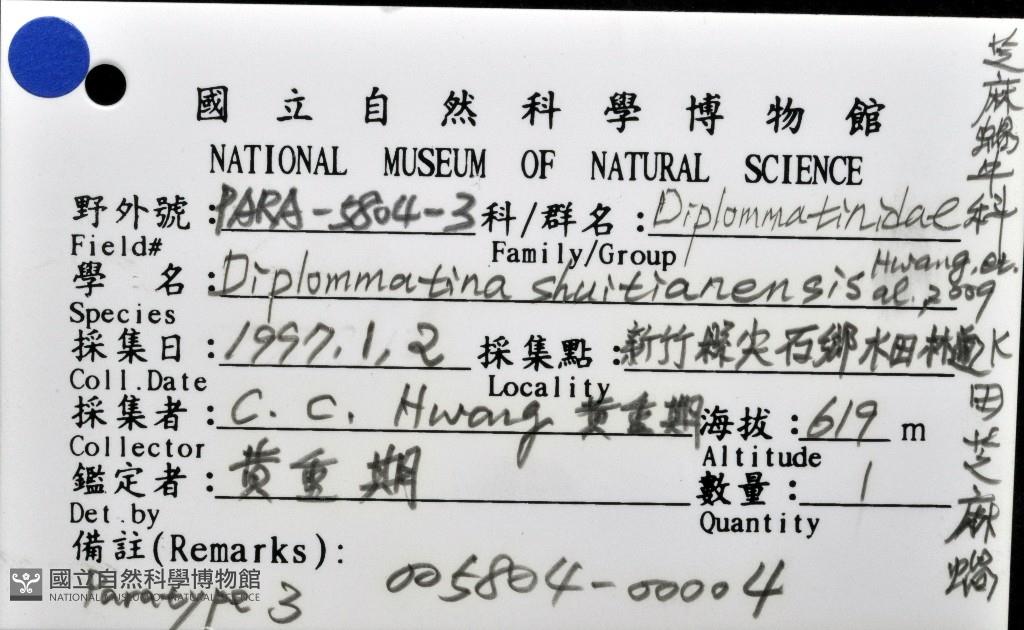 國立自然科學博物館
NATIONAL MUSEUM OF NATURAL SCIENCE
野外號：PARA-5804-3 科/群名：Diplommatinidae
Field# Family/Group
學名：Diplommatina shuitianensis Hwang, et. al., 2009
Species
採集日：1997.1.2 採集點：新竹縣尖石鄉水田林道
Coll.Date Locality
採集者：C. C. Hwang 黃重期 海拔：619 m
Collector Altitude
鑑定者：黃重期 數量：1
Det.by Quantity
備註(Remarks)：
Paratype 3 005804-00004
國立自然科學博物館
NATIONAL MUSEUM OF NATURAL SCIENCE
芝麻蝸牛科
水田芝麻蝸